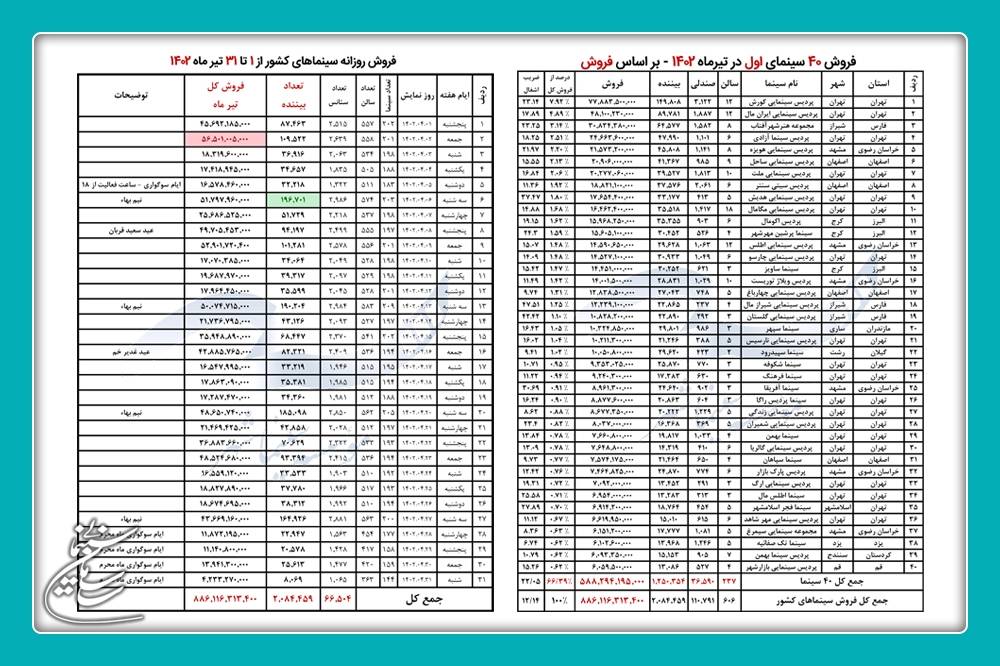 فروش ۴۰ سینمای اول در تیرماه ۱۴۰۲ - بر اساس فروش
ردیف استان شهر نام سینما سالن صندلی بیننده فروش درصد از فروش کل ضریب اشغال
۱ تهران تهران پردیس سینمایی کورش ۱۲ ۳,۱۲۲ ۱۴۹,۸۰۸ ۷۷,۸۸۳,۵۰۰,۰۰۰ ۷.۹۲ % ۲۳.۱۴
۲ تهران تهران پردیس سینمایی ایران مال ۱۲ ۱,۸۸۷ ۸۹,۷۸۱ ۴۸,۱۰۰,۲۳۰,۰۰۰ ۴.۸۹ % ۱۷.۸۹
۳ فارس شیراز مجموعه هنرشهر آفتاب ۸ ۱,۵۸۲ ۶۴,۵۷۷ ۳۰,۸۳۴,۳۸۰,۰۰۰ ۳.۱۴ % ۲۳.۲۵
۴ تهران تهران پردیس سینما آزادی ۶ ۱,۱۰۱ ۴۷,۹۹۰ ۲۴,۶۶۳,۴۰۰,۰۰۰ ۲.۵۱ % ۱۸.۲۵
۵ خراسان رضوی مشهد پردیس سینمایی هویزه ۸ ۱,۱۴۱ ۴۵,۸۰۸ ۲۱,۵۷۳,۳۰۰,۰۰۰ ۲.۲۰ % ۲۱.۹۷
۶ اصفهان اصفهان پردیس سینمایی ساحل ۹ ۹۸۵ ۴۱,۳۶۷ ۲۰,۹۰۶,۰۰۰,۰۰۰ ۲.۱۳ % ۱۵.۵۵
۷ تهران تهران پردیس سینمایی ملت ۱۰ ۱,۸۱۳ ۳۹,۵۲۷ ۲۰,۲۷۷,۰۶۰,۰۰۰ ۲.۰۶ % ۱۶.۸۴
۸ اصفهان اصفهان پردیس سیتی سنتر ۶ ۲,۰۶۱ ۳۷,۵۷۶ ۱۸,۸۲۱,۱۰۰,۰۰۰ ۱.۹۲ % ۱۱.۳۶
۹ تهران تهران پردیس سینمایی هدیش ۵ ۴۱۳ ۳۳,۱۷۷ ۱۷,۶۵۴,۴۰۰,۰۰۰ ۱.۸۰ % ۳۷.۴۷
۱۰ تهران تهران پردیس سینمایی مگامال ۱۸ ۱,۴۱۷ ۳۵,۵۱۸ ۱۶,۴۶۲,۴۰۰,۰۰۰ ۱.۶۸ % ۱۴.۸۸
۱۱ البرز کرج پردیس اکومال ۶ ۹۰۳ ۳۵,۳۵۵ ۱۵,۹۶۸,۲۵۰,۰۰۰ ۱.۶۲ % ۱۹.۱۵
۱۲ البرز کرج سینما پرشین مهرشهر ۴ ۵۲۶ ۳۰,۴۵۲ ۱۵,۶۰۵,۱۰۰,۰۰۰ ۱.۵۹ % ۲۴.۳
۱۳ خراسان رضوی مشهد پردیس سینمایی اطلس ۱۲ ۱,۰۶۳ ۲۹,۶۲۸ ۱۴,۵۹۰,۶۵۰,۰۰۰ ۱.۴۸ % ۱۵.۰۷
۱۴ تهران تهران پردیس سینمایی چارسو ۶ ۱,۰۴۹ ۳۰,۹۳۳ ۱۴,۵۲۷,۱۰۰,۰۰۰ ۱.۴۸ % ۱۴.۰۹
۱۵ البرز کرج سینما ساویز ۳ ۶۳۱ ۲۰,۲۵۲ ۱۴,۴۵۱,۰۰۰,۰۰۰ ۱.۴۷ % ۱۵.۴۲
۱۶ خراسان رضوی مشهد پردیس ویلاژ توریست ۱۰ ۱,۰۲۹ ۲۸,۸۳۱ ۱۴,۰۰۱,۵۰۰,۰۰۰ ۱.۴۳ % ۱۱.۴۹
۱۷ اصفهان اصفهان پردیس سینمایی چهارباغ ۵ ۷۴۸ ۲۷,۰۴۳ ۱۲,۸۳۸,۵۰۰,۰۰۰ ۱.۳۱ % ۹.۷۴
۱۸ فارس شیراز پردیس سینمایی شیراز مال ۴ ۲۳۷ ۲۲,۸۶۵ ۱۲,۲۳۹,۱۰۰,۰۰۰ ۱.۲۵ % ۴۷.۵۱
۱۹ فارس شیراز پردیس سینمایی گلستان ۳ ۲۹۲ ۲۲,۸۹۰ ۱۰,۸۲۸,۲۰۰,۰۰۰ ۱.۱۰ % ۴۲.۴۲
۲۰ مازندران ساری سینما سپهر ۳ ۹۸۶ ۲۹,۸۰۱ ۱۰,۳۲۴,۸۵۰,۰۰۰ ۱.۰۵ % ۱۶.۴۳
۲۱ تهران تهران پردیس سینمایی نارسیس ۵ ۳۸۸ ۲۱,۲۴۶ ۱۰,۲۱۱,۳۰۰,۰۰۰ ۱.۰۴ % ۱۶.۰۲
۲۲ گیلان رشت سینما سپیدرود ۲ ۴۲۳ ۲۹,۶۲۰ ۱۰,۰۵۰,۸۰۰,۰۰۰ ۱.۰۲ % ۹.۴۱
۲۳ تهران تهران سینما شکوفه ۳ ۷۷۰ ۲۵,۸۷۰ ۹,۳۵۳,۰۲۵,۰۰۰ ۰.۹۵ % ۱۰.۷۱
۲۴ تهران تهران سینما فرهنگ ۳ ۶۳۰ ۱۷,۳۸۳ ۹,۲۴۰,۳۰۰,۰۰۰ ۰.۹۴ % ۱۱.۲۲
۲۵ خراسان رضوی مشهد سینما آفریقا ۳ ۹۰۲ ۲۴,۶۲۰ ۸,۹۶۱,۳۰۰,۰۰۰ ۰.۹۱ % ۳۰.۶۹
۲۶ تهران تهران سینما پردیس راگا ۳ ۶۰۴ ۲۰,۸۶۳ ۸,۸۷۷,۶۰۰,۰۰۰ ۰.۹۰ % ۱۶.۲۴
۲۷ تهران تهران پردیس سینمایی زندگی ۵ ۱,۲۲۹ ۲۰,۲۲۲ ۸,۶۷۷,۳۵۰,۰۰۰ ۰.۸۸ % ۸.۶۲
۲۸ تهران تهران پردیس سینمایی شمیران ۵ ۳۶۹ ۱۶,۳۶۸ ۸,۰۳۷,۰۰۰,۰۰۰ ۰.۸۲ % ۴۳.۴
۲۹ تهران تهران سینما بهمن ۴ ۱,۰۳۳ ۱۹,۸۱۷ ۷,۶۶۰,۸۰۰,۰۰۰ ۰.۷۸ % ۱۳.۸۴
۳۰ تهران تهران پردیس سینمایی گالریا ۶ ۴۱۰ ۱۴,۳۱۹ ۷,۶۴۸,۸۰۰,۰۰۰ ۰.۷۸ % ۱۳.۰۹
۳۱ اصفهان اصفهان سینما سپاهان ۴ ۶۵۰ ۲۱,۴۶۴ ۷,۵۷۴,۱۷۵,۰۰۰ ۰.۷۷ % ۹.۷۳
۳۲ خراسان رضوی مشهد پردیس پارک بازار ۶ ۷۷۴ ۲۴,۸۷۰ ۷,۴۶۴,۸۲۵,۰۰۰ ۰.۷۶ % ۱۲.۴۲
۳۳ تهران تهران پردیس سینمایی ارگ ۳ ۲۹۱ ۱۳,۴۵۲ ۷,۰۹۲,۰۰۰,۰۰۰ ۰.۷۲ % ۱۹.۳۱
۳۴ تهران تهران سینما اطلس مال ۴ ۳۱۳ ۱۳,۲۸۳ ۶,۹۵۴,۰۰۰,۰۰۰ ۰.۷۱ % ۲۵.۵۸
۳۵ تهران اسلامشهر سینما فجر اسلامشهر ۵ ۴۵۴ ۱۸,۷۶۴ ۶,۹۱۴,۲۰۰,۰۰۰ ۰.۷۰ % ۲۷.۸۹
۳۶ تهران تهران پردیس سینمایی مهر شاهد ۶ ۶۱۵ ۱۵,۰۱۰ ۶,۶۱۹,۹۵۰,۰۰۰ ۰.۶۷ % ۱۱.۱۲
۳۷ خراسان رضوی مشهد مجموعه سینمایی سیمرغ ۵ ۱,۰۸۱ ۱۷,۷۷۷ ۶,۱۵۱,۲۰۰,۰۰۰ ۰.۶۳ % ۸.۳۶
۳۸ یزد یزد سینما تک صفائیه ۵ ۱,۲۴۶ ۱۳,۹۶۸ ۶,۱۰۲,۶۰۰,۰۰۰ ۰.۶۲ % ۶.۷۴
۳۹ کردستان سنندج پردیس سینما بهمن ۷ ۹۰۵ ۱۵,۱۵۳ ۶,۰۹۲,۳۵۰,۰۰۰ ۰.۶۲ % ۱۰.۷۹
۴۰ قم قم پردیس سینمایی بازارشهر ۴ ۵۲۷ ۱۳,۰۸۶ ۶,۰۵۹,۵۰۰,۰۰۰ ۰.۶۲ % ۱۵.۲۶
جمع کل ۴۰ سینما ۲۳۷ ۳۶,۵۹۰ ۱,۲۵۰,۳۵۴ ۵۸۸,۲۹۴,۱۹۵,۰۰۰ ۶۶/۳۹% ۲۲/۰۵
جمع کل فروش سینماهای کشور ۶۰۶ ۱۱۰,۷۹۱ ۲,۰۸۴,۴۵۹ ۸۸۶,۱۱۶,۳۱۳,۴۰۰ ۱۰۰% ۱۲/۱۴
فروش روزانه سینماهای کشور از ۱ تا ۳۱ تیر ماه ۱۴۰۲
ردیف ایام هفته روز نمایش تعداد سینما تعداد سالن تعداد سانس تعداد بیننده فروش کل تیر ماه توضیحات
۱ پنجشنبه ۱۴۰۲.۰۴.۰۱ ۲۰۲ ۵۵۷ ۲,۵۱۵ ۸۷,۴۶۳ ۴۵,۶۹۲,۱۸۵,۰۰۰
۲ جمعه ۱۴۰۲.۰۴.۰۲ ۲۰۱ ۵۵۸ ۲,۶۳۹ ۱۰۹,۵۲۲ ۵۶,۵۰۱,۰۰۵,۰۰۰
۳ شنبه ۱۴۰۲.۰۴.۰۳ ۱۹۸ ۵۳۴ ۲,۰۶۳ ۳۶,۹۱۶ ۱۸,۳۱۹,۶۰۰,۰۰۰
۴ یکشنبه ۱۴۰۲.۰۴.۰۴ ۱۸۸ ۵۰۵ ۱,۸۳۵ ۳۴,۶۵۷ ۱۷,۴۱۸,۹۴۵,۰۰۰
۵ دوشنبه ۱۴۰۲.۰۴.۰۵ ۱۸۳ ۵۱۱ ۱,۳۲۲ ۳۲,۲۱۸ ۱۶,۵۷۸,۴۶۰,۰۰۰ ایام سوگواری - ساعت فعالیت از ۱۸
۶ سه شنبه ۱۴۰۲.۰۴.۰۶ ۲۰۳ ۵۷۴ ۲,۹۸۶ ۱۹۶,۷۰۱ ۵۱,۷۹۷,۹۶۰,۰۰۰ نیم بهاء
۷ چهارشنبه ۱۴۰۲.۰۴.۰۷ ۱۹۷ ۵۳۷ ۲,۲۱۸ ۵۱,۷۲۹ ۲۵,۶۸۶,۵۲۵,۰۰۰
۸ پنجشنبه ۱۴۰۲.۰۴.۰۸ ۱۹۷ ۵۵۵ ۲,۴۹۹ ۹۴,۱۹۷ ۴۹,۷۰۵,۴۵۳,۰۰۰ عید سعید قربان
۹ جمعه ۱۴۰۲.۰۴.۰۹ ۲۰۱ ۵۵۶ ۲,۵۷۸ ۱۰۱,۲۸۱ ۵۲,۹۰۱,۷۲۰,۴۰۰
۱۰ شنبه ۱۴۰۲.۰۴.۱۰ ۱۹۸ ۵۲۸ ۲,۰۴۹ ۳۴,۰۶۴ ۱۷,۰۷۰,۳۸۵,۰۰۰
۱۱ یکشنبه ۱۴۰۲.۰۴.۱۱ ۱۹۸ ۵۲۹ ۲,۰۹۷ ۳۹,۳۱۷ ۱۹,۶۸۷,۹۷۰,۰۰۰
۱۲ دوشنبه ۱۴۰۲.۰۴.۱۲ ۲۰۱ ۵۲۸ ۲,۰۴۵ ۳۵,۵۹۹ ۱۷,۹۶۴,۴۵۰,۰۰۰
۱۳ سه شنبه ۱۴۰۲.۰۴.۱۳ ۲۰۹ ۵۸۳ ۲,۹۸۴ ۱۹۰,۲۰۴ ۵۰,۰۷۴,۷۱۵,۰۰۰ نیم بهاء
۱۴ چهارشنبه ۱۴۰۲.۰۴.۱۴ ۱۹۷ ۵۲۷ ۲,۰۹۳ ۴۳,۱۲۶ ۲۱,۷۳۶,۷۹۵,۰۰۰
۱۵ پنجشنبه ۱۴۰۲.۰۴.۱۵ ۲۰۲ ۵۴۱ ۲,۳۷۰ ۶۸,۴۴۷ ۳۵,۹۴۸,۸۹۰,۰۰۰
۱۶ جمعه ۱۴۰۲.۰۴.۱۶ ۱۹۴ ۵۳۶ ۲,۴۰۹ ۸۲,۳۲۱ ۴۲,۸۸۵,۷۶۵,۰۰۰ عید غدیر خم
۱۷ شنبه ۱۴۰۲.۰۴.۱۷ ۱۹۵ ۵۱۵ ۱,۹۴۶ ۳۳,۲۱۹ ۱۶,۵۴۷,۹۹۵,۰۰۰
۱۸ یکشنبه ۱۴۰۲.۰۴.۱۸ ۱۹۴ ۵۱۵ ۱,۹۸۵ ۳۵,۳۸۱ ۱۷,۸۶۳,۰۹۰,۰۰۰
۱۹ دوشنبه ۱۴۰۲.۰۴.۱۹ ۱۸۸ ۵۱۲ ۱,۹۸۱ ۳۴,۳۶۰ ۱۷,۲۸۷,۴۷۰,۰۰۰
۲۰ سه شنبه ۱۴۰۲.۰۴.۲۰ ۲۰۵ ۵۶۲ ۲,۸۵۰ ۱۸۵,۰۹۸ ۴۸,۶۵۰,۷۴۰,۰۰۰ نیم بهاء
۲۱ چهارشنبه ۱۴۰۲.۰۴.۲۱ ۱۹۷ ۵۱۲ ۲,۰۲۸ ۴۲,۸۵۸ ۲۱,۴۶۹,۴۲۵,۰۰۰
۲۲ پنجشنبه ۱۴۰۲.۰۴.۲۲ ۱۹۳ ۵۳۳ ۲,۳۲۲ ۷۰,۶۲۹ ۳۶,۸۸۳,۶۶۰,۰۰۰
۲۳ جمعه ۱۴۰۲.۰۴.۲۳ ۱۹۴ ۵۳۶ ۲,۴۱۵ ۹۳,۳۹۴ ۴۸,۵۲۴,۶۸۰,۰۰۰
۲۴ شنبه ۱۴۰۲.۰۴.۲۴ ۱۹۲ ۵۱۰ ۱,۹۰۳ ۳۳,۵۳۳ ۱۶,۵۵۹,۱۲۰,۰۰۰
۲۵ یکشنبه ۱۴۰۲.۰۴.۲۵ ۱۹۳ ۵۱۷ ۱,۹۶۶ ۳۷,۷۸۰ ۱۸,۸۳۷,۸۹۰,۰۰۰
۲۶ دوشنبه ۱۴۰۲.۰۴.۲۶ ۱۹۴ ۵۱۰ ۱,۹۹۲ ۳۸,۳۱۲ ۱۸,۶۷۴,۶۹۵,۰۰۰
۲۷ سه شنبه ۱۴۰۲.۰۴.۲۷ ۲۰۰ ۵۶۳ ۲,۸۸۱ ۱۶۴,۹۲۶ ۴۳,۶۶۹,۱۶۰,۰۰۰ نیم بهاء
۲۸ چهارشنبه ۱۴۰۲.۰۴.۲۸ ۱۷۷ ۴۵۴ ۱,۵۶۳ ۲۲,۹۴۷ ۱۱,۸۷۲,۱۹۵,۰۰۰ ایام سوگواری ماه محرم
۲۹ پنجشنبه ۱۴۰۲.۰۴.۲۹ ۱۵۸ ۴۱۷ ۱,۴۲۸ ۲۰,۵۷۸ ۱۱,۱۴۰,۸۰۰,۰۰۰ ایام سوگواری ماه محرم
۳۰ جمعه ۱۴۰۲.۰۴.۳۰ ۱۵۹ ۴۲۰ ۱,۴۷۷ ۲۵,۶۱۳ ۱۳,۹۴۱,۳۰۰,۰۰۰ ایام سوگواری ماه محرم
۳۱ شنبه ۱۴۰۲.۰۴.۳۱ ۱۴۴ ۳۶۳ ۱,۰۶۵ ۸,۰۶۹ ۴,۲۳۳,۲۷۰,۰۰۰ ایام سوگواری ماه محرم
جمع کل ۶۶,۵۰۴ ۲,۰۸۴,۴۵۹ ۸۸۶,۱۱۶,۳۱۳,۴۰۰